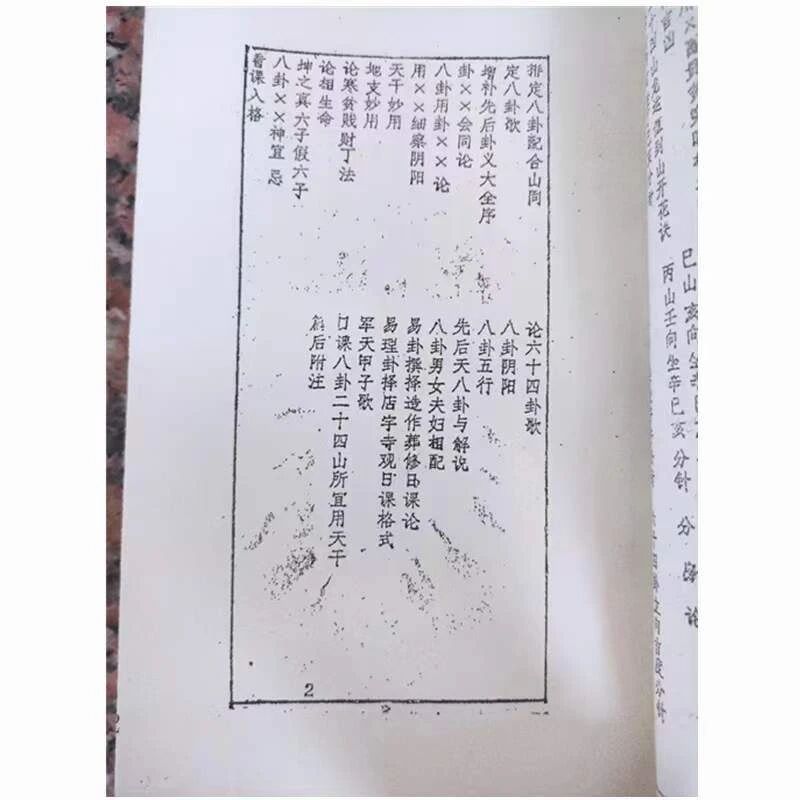 排定八卦配合山向
定八卦歌
增补先后卦义大全序
卦××会同论
八卦用卦××论
用××细察阴阳
天干妙用
地支妙用
论寒贫贱财丁法
论相生命
坤之真六子假六子
八卦××神宜忌
看课入格
论六十四卦歌
八卦阴阳
八卦五行
先后天八卦与解说
八卦男女夫妇相配
易卦撰择造作葬修日课论
易理卦择店字寺观日课格式
军天甲子歌
日课八卦二十四山所宜用天干
后附注
2
巳山亥向
丙山壬向坐辛巳亥分针